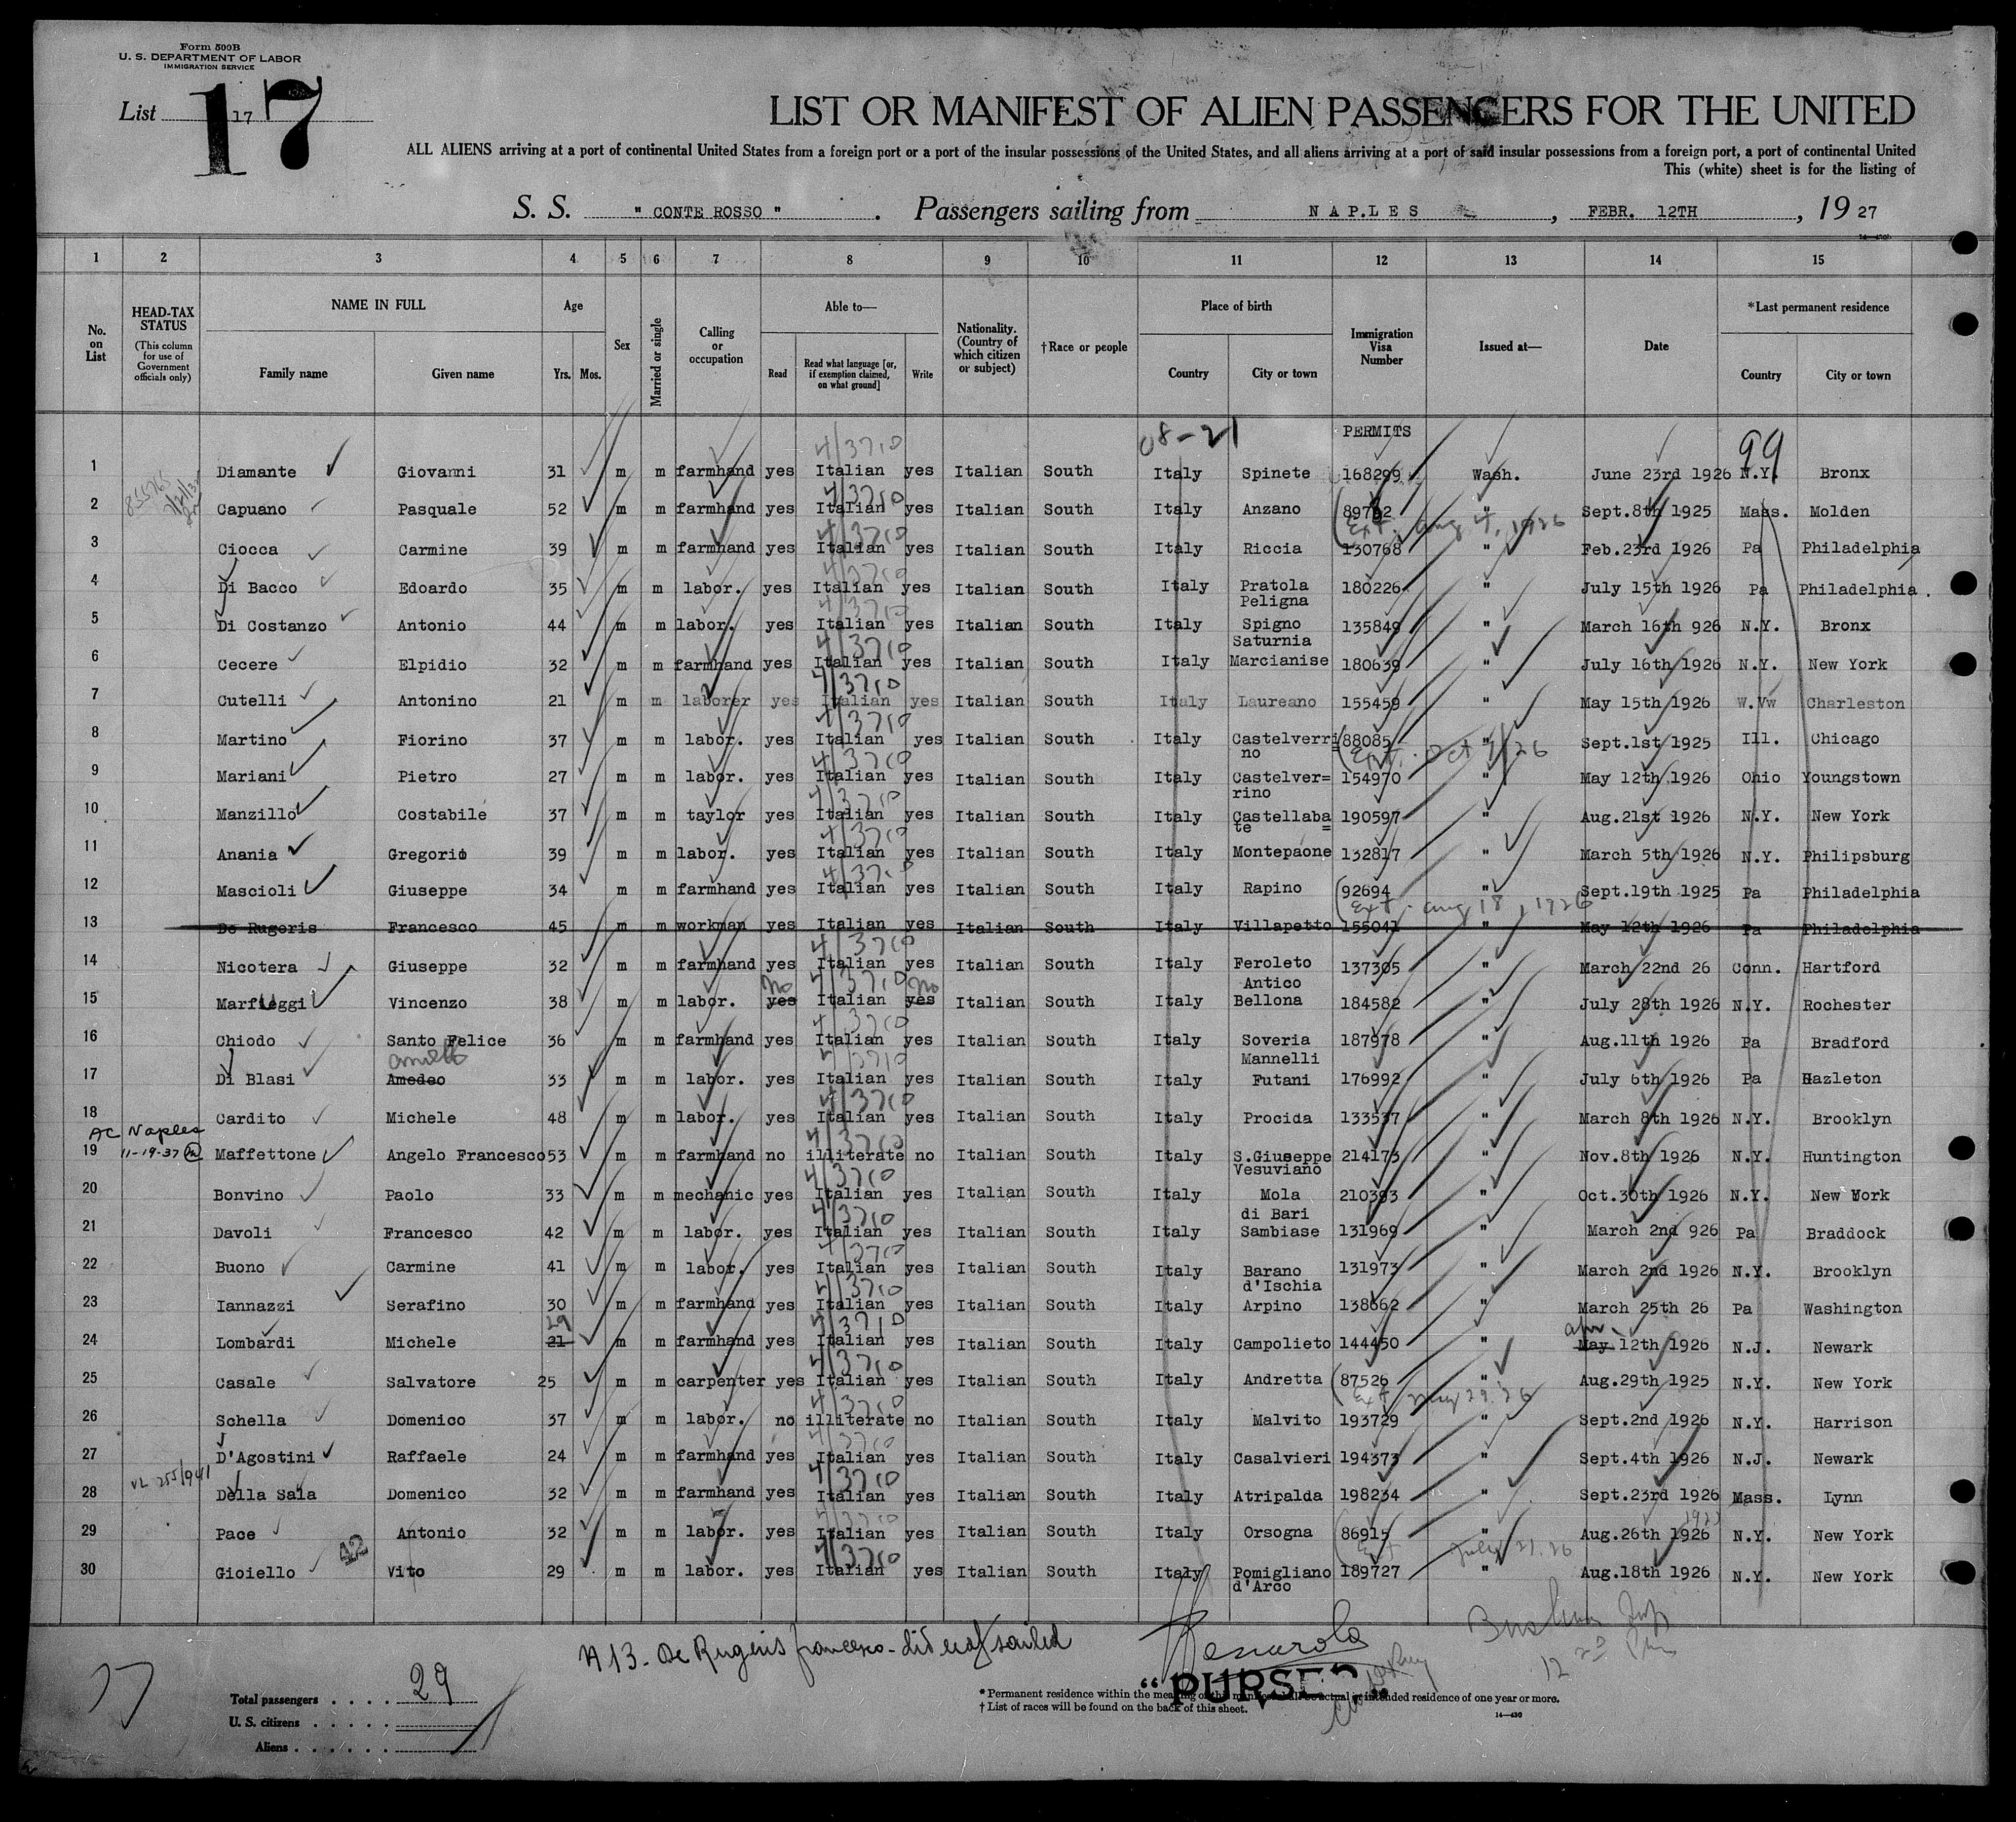 Form 500B
U. S. DEPARTMENT OF LABOR
IMMIGRATION SERVICE
List 17
17
LIST OR MANIFEST OF ALIEN PASSENGERS FOR THE UNITED
ALL ALIENS arriving at a port of continental United States from a foreign port or a port of the insular possessions of the United States, and all aliens arriving at a port of said insular possessions from a foreign port, a port of continental United
This (white) sheet is for the listing of
S. S. " CONTE ROSSO " . Passengers sailing from N A P.L E S , FEBR. 12TH , 19 27
1 2 3 4 5 6 7 8 9 10 11 12 13 14 15
No. on List
HEAD-TAX STATUS (This column for use of Government officials only)
NAME IN FULL
Family name Given name
Age
Yrs. Mos.
Sex
Married or single
Calling or occupation
Able to—
Read Read what language [or, if exemption claimed, on what ground] Write
Nationality. (Country of which citizen or subject)
†Race or people
Place of birth
Country City or town
Immigration Visa Number
Issued at—
Date
*Last permanent residence
Country City or town
08-21 PERMITS 99
1 Diamante Giovanni 31 m m farmhand yes Italian yes Italian South Italy Spinete 168299 Wash. June 23rd 1926 N.Y. Bronx
2 Capuano Pasquale 52 m m farmhand yes Italian yes Italian South Italy Anzano 89792 " Sept.8th 1925 Mass. Molden
Ext. Aug 4, 1926
3 Ciocca Carmine 39 m m farmhand yes Italian yes Italian South Italy Riccia 130768 " Feb.23rd 1926 Pa Philadelphia
4 Di Bacco Edoardo 35 m m labor. yes Italian yes Italian South Italy Pratola Peligna 180226 " July 15th 1926 Pa Philadelphia.
5 Di Costanzo Antonio 44 m m labor. yes Italian yes Italian South Italy Spigno Saturnia 135849 " March 16th 926 N.Y. Bronx
6 Cecere Elpidio 32 m m farmhand yes Italian yes Italian South Italy Marcianise 180639 " July 16th 1926 N.Y. New York
7 Cutelli Antonino 21 m m laborer yes Italian yes Italian South Italy Laureano 155459 " May 15th 1926 W.Vw Charleston
8 Martino Fiorino 37 m m labor. yes Italian yes Italian South Italy Castelverri no 88085 " Sept.1st 1925 Ill. Chicago
9 Mariani Pietro 27 m m labor. yes Italian yes Italian South Italy Castelver= rino 154970 " May 12th 1926 Ohio Youngstown
10 Manzillo Costabile 37 m m taylor yes Italian yes Italian South Italy Castellaba= te 190597 " Aug.21st 1926 N.Y. New York
11 Anania Gregorio 39 m m labor. yes Italian yes Italian South Italy Montepaone 132817 " March 5th 1926 N.Y. Philipsburg
12 Mascioli Giuseppe 34 m m farmhand yes Italian yes Italian South Italy Rapino 92694 " Sept.19th 1925 Pa Philadelphia
Ext. Aug 18, 1926
13 De Rugeris Francesco 45 m m workman yes Italian yes Italian South Italy Villapetto 155041 " May 12th 1926 Pa Philadelphia
14 Nicotera Giuseppe 32 m m farmhand yes Italian yes Italian South Italy Feroleto Antico 137305 " March 22nd 26 Conn. Hartford
15 Marfueggi Vincenzo 38 m m labor. yes no Italian yes no Italian South Italy Bellona 184582 " July 28th 1926 N.Y. Rochester
16 Chiodo Santo Felice 36 m m farmhand yes Italian yes Italian South Italy Soveria Mannelli 187978 " Aug.11th 1926 Pa Bradford
17 Di Blasi Amedeo 33 m m labor. yes Italian yes Italian South Italy Futani 176992 " July 6th 1926 Pa Hazleton
18 Cardito Michele 48 m m labor. yes Italian yes Italian South Italy Procida 133537 " March 8th 1926 N.Y. Brooklyn
AC Naples
11-19-37
19 Maffettone Angelo Francesco 53 m m farmhand no illiterate no Italian South Italy S.Giuseppe Vesuviano 214173 " Nov.8th 1926 N.Y. Huntington
20 Bonvino Paolo 33 m m mechanic yes Italian yes Italian South Italy Mola di Bari 210393 " Oct.30th 1926 N.Y. New York
21 Davoli Francesco 42 m m labor. yes Italian yes Italian South Italy Sambiase 131969 " March 2nd 926 Pa Braddock
22 Buono Carmine 41 m m labor. yes Italian yes Italian South Italy Barano d'Ischia 131973 " March 2nd 1926 N.Y. Brooklyn
23 Iannazzi Serafino 30 m m farmhand yes Italian yes Italian South Italy Arpino 138662 " March 25th 26 Pa Washington
24 Lombardi Michele 21 29 m m farmhand yes Italian yes Italian South Italy Campolieto 144450 " May Apr. 12th 1926 N.J. Newark
25 Casale Salvatore 25 m m carpenter yes Italian yes Italian South Italy Andretta 87526 " Aug.29th 1925 N.Y. New York
26 Schella Domenico 37 m m labor. no illiterate no Italian South Italy Malvito 193729 " Sept.2nd 1926 N.Y. Harrison
27 D'Agostini Raffaele 24 m m farmhand yes Italian yes Italian South Italy Casalvieri 194373 " Sept.4th 1926 N.J. Newark
28 Della Sala Domenico 32 m m farmhand yes Italian yes Italian South Italy Atripalda 198234 " Sept.23rd 1926 Mass. Lynn
29 Pace Antonio 32 m m labor. yes Italian yes Italian South Italy Orsogna 86915 " Aug.26th 1926 N.Y. New York
Ext July 21.26
30 Gioiello Vito 29 m m labor. yes Italian yes Italian South Italy Pomigliano d'Arco 189727 " Aug.18th 1926 N.Y. New York
N 13- De Rugeris Francesco- did not sailed
17
"PURSER"
Total passengers . . . . 29
U. S. citizens . . . . .
Aliens . . . . . .
* Permanent residence within the meaning of this manifest shall be actual or intended residence of one year or more.
† List of races will be found on the back of this sheet.
14—430